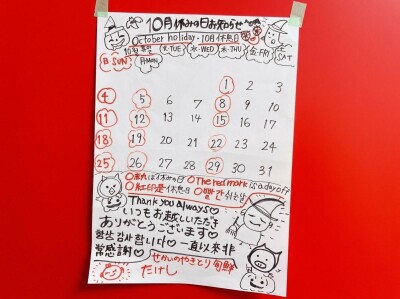 10月休みの日お知らせ
October holiday・10月休息日
日SUN 月MON 火・TUE 水・WED 木・THU 金・FRI 土 SAT
1 2 3
4 5 6 7 8 9 10
11 12 13 14 15 16 17
18 19 20 21 22 23 24
25 26 27 28 29 30 31
○赤丸は休みの日 ○The red mark is a day off
○紅印是休息日 ○빨간
Thank you always♡
いつもお越しいただき
ありがとうございます♡
항상 감사합니다♡ 一直以来非
常感謝♡
せかいのやきとり 旬鮮
たけし